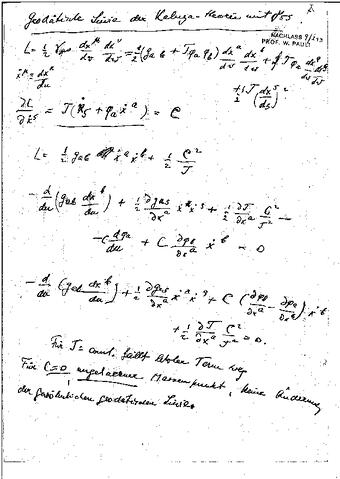 Geodätische Linie der Kaluza-Theorie mit g55
NACHLASS 9/213
PROF. W. PAULI
L = 1/2 γμν dx^μ/ds dx^ν/ds = 1/2 (g_ab + J φ_a φ_b) dx^a/ds dx^b/ds + J φ_a dx^a/ds dx^5/ds
ẋ^μ = dx^μ/du
+ 1/2 J (dx^5/ds)^2
∂L/∂ẋ^5 = J (ẋ^5 + φ_a ẋ^a) = C
L = 1/2 g_ab ẋ^a ẋ^b + 1/2 C^2/J
- d/du (g_ab dx^b/du) + 1/2 ∂g_rs/∂x^a ẋ^r ẋ^s + 1/2 ∂J/∂x^a C^2/J^2 -
- C dφ_a/du + C ∂φ_b/∂x^a ẋ^b = 0
- d/du (g_ab dx^b/du) + 1/2 ∂g_rs/∂x^a ẋ^r ẋ^s + C (∂φ_b/∂x^a - ∂φ_a/∂x^b) ẋ^b
+ 1/2 ∂J/∂x^a C^2/J^2 = 0.
Für J = const. fällt letzter Term weg
Für C=0, ungeladener Massenpunkt, keine Änderung
der gewöhnlichen geodätischen Linie.